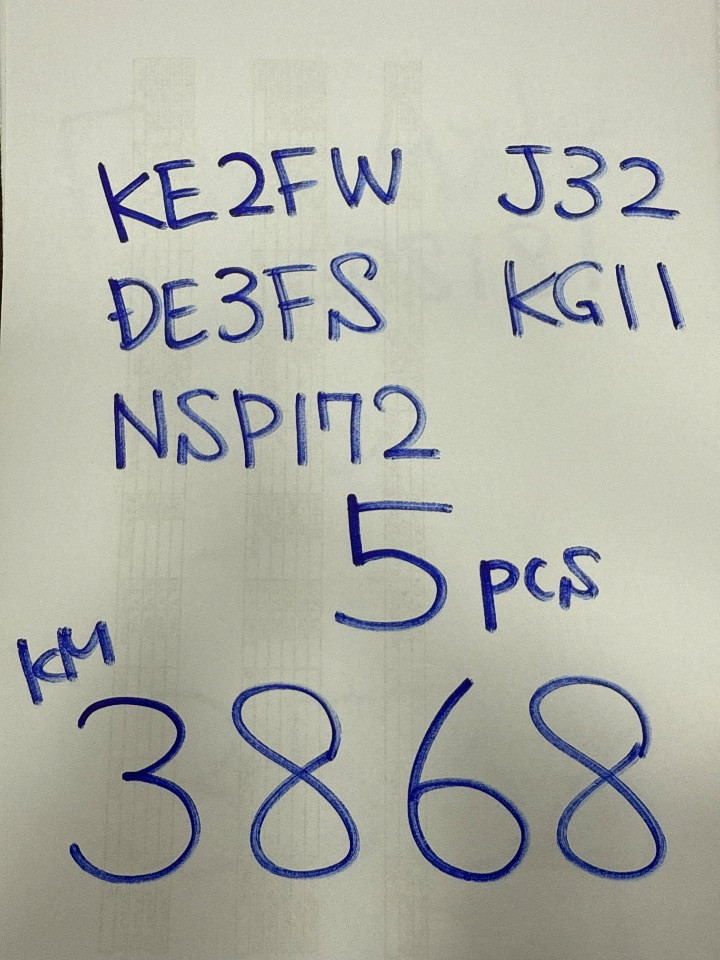 KE2FW J32
DE3FS KG11
NSP172
5 pcs
KM
3868